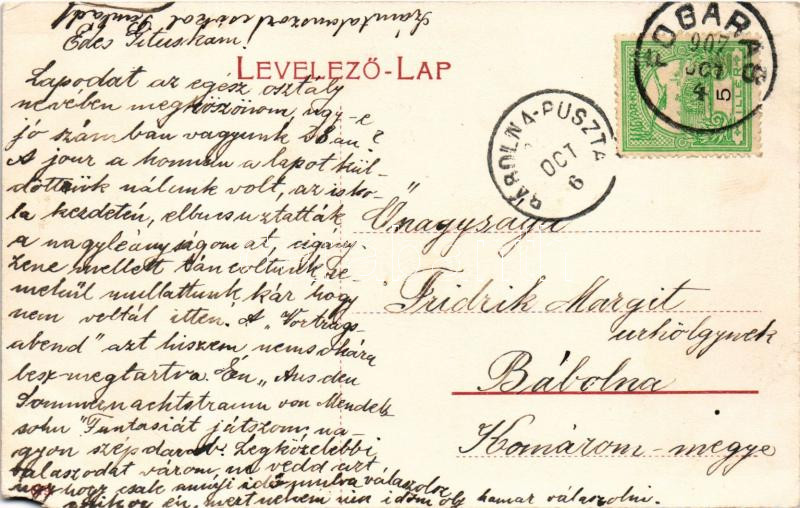 Számtalanszor csókol
Édes Tituskám!
LEVELEZŐ-LAP
Lapodat az egész osztály
nevében megköszönöm, úgy-e
jó számban vagyunk
A jour a honnan a lapot kül-
döttük nálunk volt, az isko-
la kezdetén, elbucsuztatták
a nagyleányságomat, cigány-
zene mellett táncoltunk re-
mekül mullattunk kár hogy
nem voltál itten. A „Vortrags-
abend" azt hiszem nemsokára
lesz megtartva. Én „Aus den
Sommernachtstraum von Mendels
sohn" Fantasiát játszom na-
gyon szép darab. Legközelebbi
válaszodat várom, ne vedd azt
úgy hogy csak annyi idő mulva válaszolsz
mikor én, mert nekem nincs időm oly hamar válaszolni.
FOGARAS
907
OCT
4
5 FILLÉR
KAROLINA-PUSZTA
OCT
6
Önagysága
Fridrik Margit
urhölgynek
Bábolna
Komárom-megye